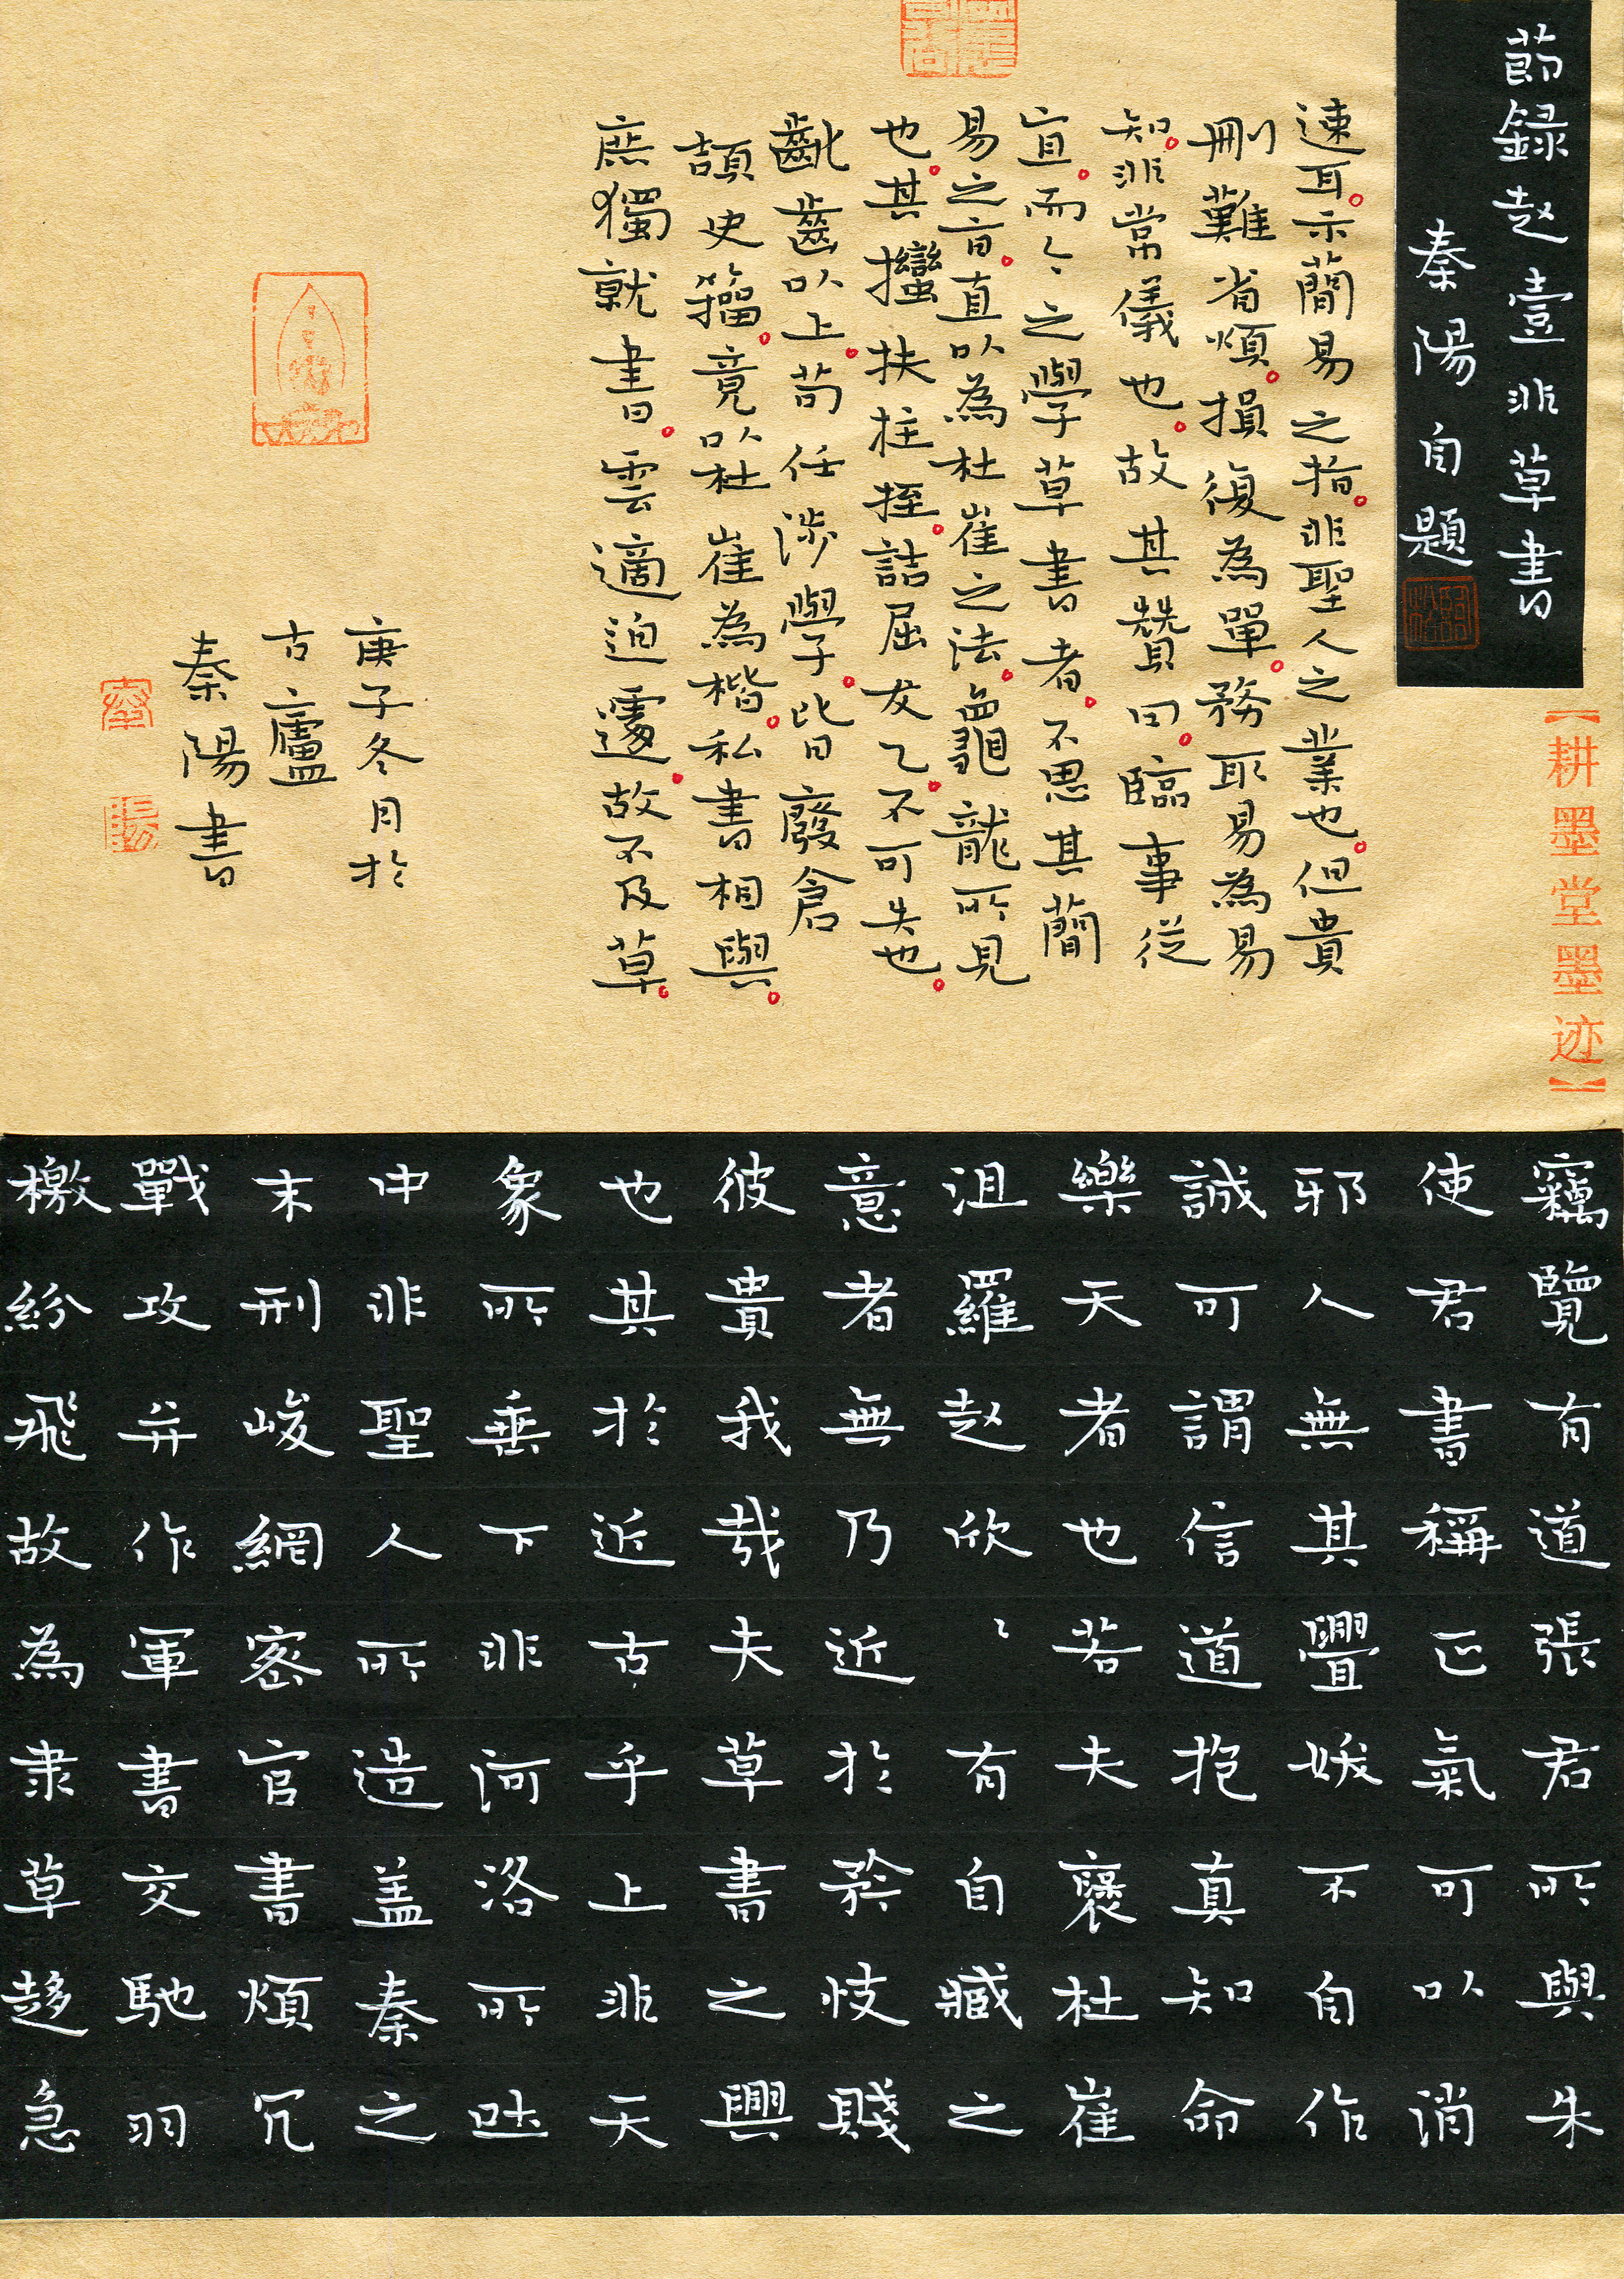 節録赵壹非草書
秦陽自題
【耕墨堂墨迹】
竊覽有道張君所與朱
使君書稱正氣可以消
邪人無其釁妖不自作
誠可謂信道抱真知命
樂天者也若夫褒杜崔
沮羅赵欣〻有自臧之
意者無乃近於矜忮賤
彼貴我哉夫草書之興
也其於近古乎上非天
象所垂下非河洛所吐
中非聖人所造盖秦之
末刑峻網密官書煩冗
戰攻并作軍書交馳羽
檄紛飛故為隶草趍急
速耳。示簡易之指。非聖人之業也。但貴
刪難省煩。損復為單。務取易為易
知。非常儀也。故其贊曰。臨事從
宜。而今之學草書者。不思其簡
易之旨。直以為杜崔之法。龜龍所見
也。其攣扶拄挃。詰屈犮乙。不可失也。
齔齒以上。苟任涉學。皆廢倉
頡史籀。竟以杜崔為楷。私書相與。
庶獨就書。雲適迫遽。故不及草。
庚子冬月於
古廬
秦陽書